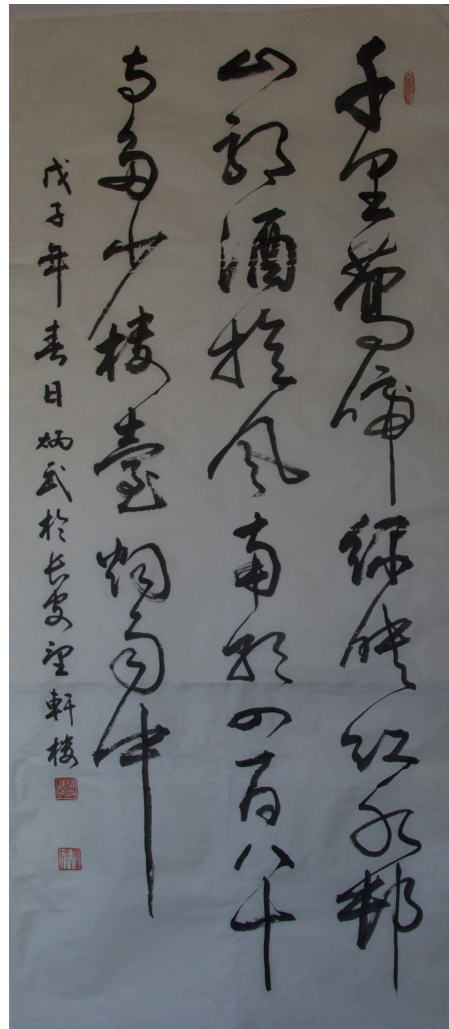 千里莺啼绿映红水邨
山郭酒旗风南朝四百八十
寺多少楼臺烟雨中
戊子年春日炳武於长安望軒楼